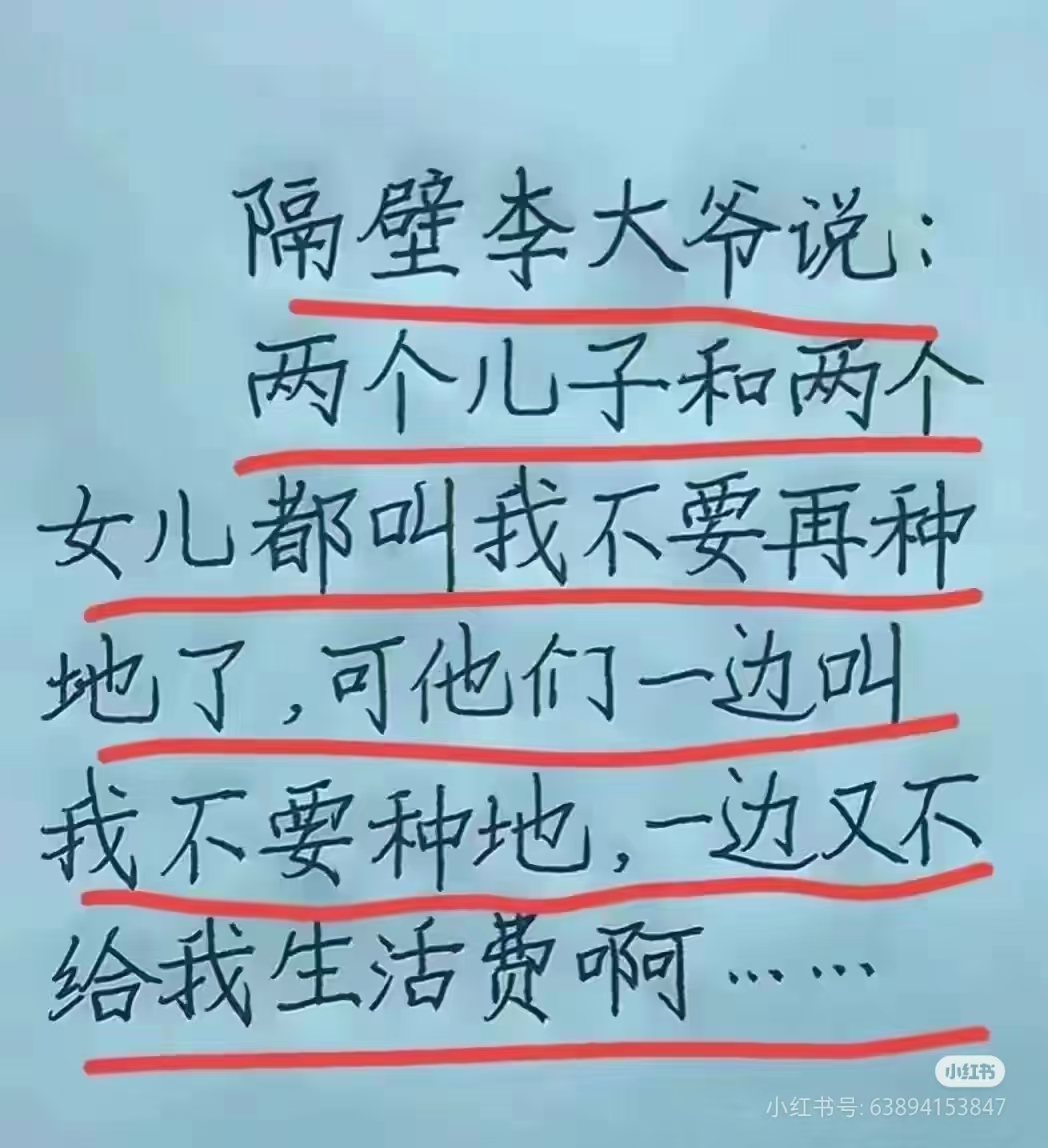 隔壁李大爷说:
两个儿子和两个
女儿都叫我不要再种
地了,可他们一边叫
我不要种地,一边又不
给我生活费啊……
小红书
小红书号: 63894153847